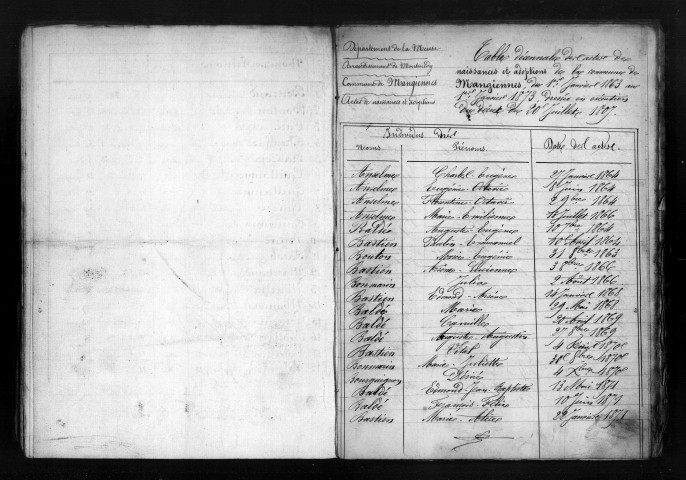 Département de la Meuse
Arrondissement de Montmédy
Commune de Mangiennes
Actes de naissances et adoptions
Table décennale des actes de
naissances et adoptions de la commune de
Mangiennes, du 1er Janvier 1863 au
1er Janvier 1873 dressée en exécution
du décret du 20 Juillet 1807.
Individus
Noms. Prénoms. Dates des actes.
Anselme Charles Eugène 27 Janvier 1864
Anselme Eugénie Octavie 8 Juin 1864
Anselme Florentine Octavie 2 9bre 1864
Anselme Marie Emilienne Juillet 1866
Baldé Auguste Eugène 10 1864
Bastien Paulin Emmanuel 10 Avril 1864
Bouton Marie Eugénie 31 8bre 1863
Bastien 3 8bre 1866
Bonmann Julia 2 Août 1866
Bastien Edmond Arsène 14 Janvier 1868
Baldé Marie 29 Mai 1868
Baldé Camille 20 Août 1869
Baldé Auguste Augustin 27 8bre 1869
Bastien Vital 4 1870
Bonmann Marie Juliette 30 8bre 1870
Désiré 4 Xbre 1870
Baldé Edmond Jean Baptiste 13 Mai 1871
Baldé François Félix 10 Juin 1871
Bastien Marie Alice 22 Janvier 1871